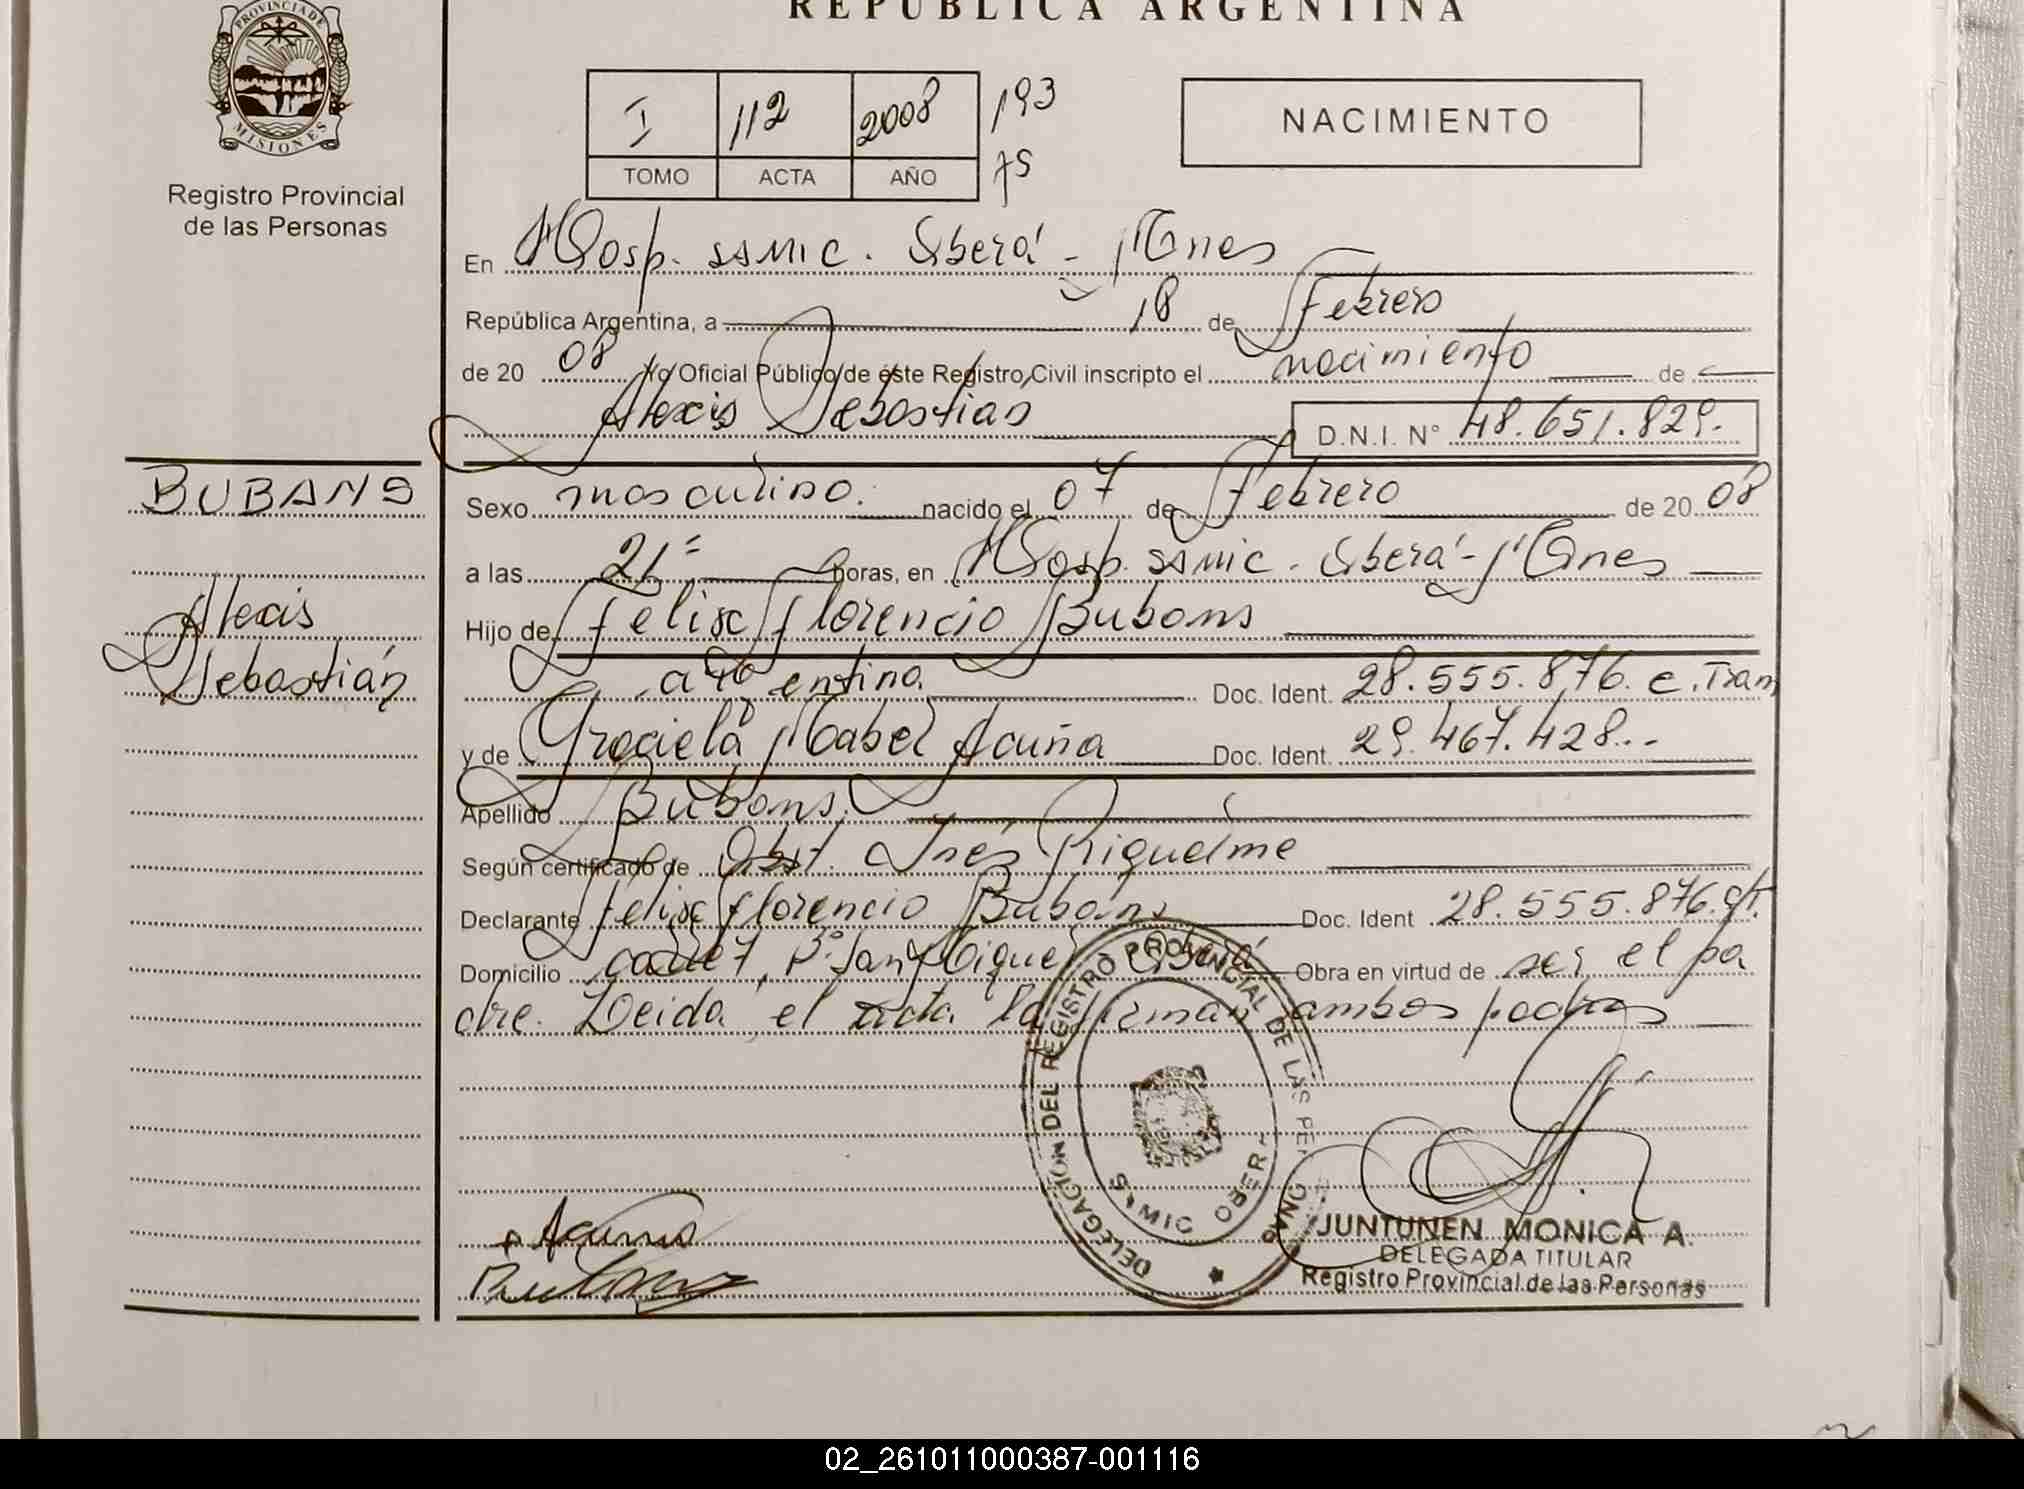 REPUBLICA ARGENTINA
PROVINCIA DE
MISIONES
Registro Provincial
de las Personas
I 112 2008 193
TOMO ACTA AÑO 75
NACIMIENTO
En Hosp. SAMIC. Oberá - Mnes
República Argentina, a 18 de Febrero
de 20 08 Yo Oficial Público de este Registro Civil inscripto el nacimiento de
Alexis Sebastian D.N.I. N° 48.651.829.
BUBANS
Alexis
Sebastián
Sexo masculino. nacido el 07 de Febrero de 20 08
a las 21= horas, en Hosp. SAMIC. Oberá - Mnes
Hijo de Felix Florencio Bubans
argentina Doc. Ident. 28.555.876. e. Tram
y de Graciela Mabel Acuña Doc. Ident. 29.467.428..-
Apellido Bubans.
Según certificado de Obst. Inés Riquelme
Declarante Felix Florencio Bubans Doc. Ident 28.555.876.
Domicilio B° San Miguel Oberá Obra en virtud de ser el pa
dre. Leida el acta la firman ambos padres
DELEGACION DEL REGISTRO PROVINCIAL DE LAS
SAMIC OBERA
Acuña
Bubans
JUNTUNEN MONICA A.
DELEGADA TITULAR
Registro Provincial de las Personas
02_261011000387-001116